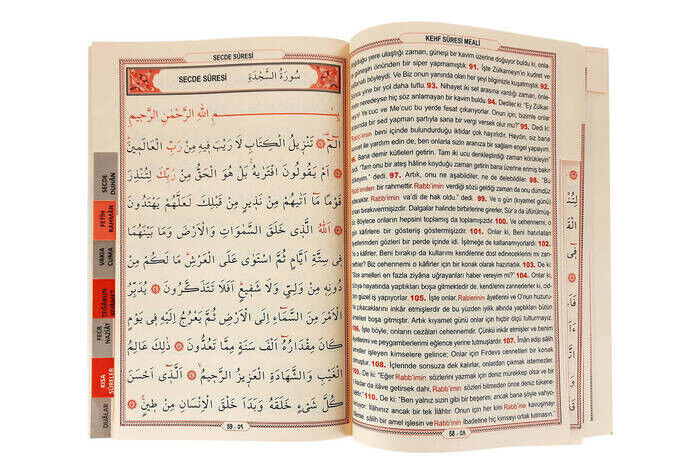 SECDE SÛRESİ
SECDE SÛRESİ
سُورَةُ السَّجْدَةِ
بِسْمِ اللهِ الرَّحْمٰنِ الرَّحِيمِ
الٓمٓ ۞ تَنْزِيلُ الْكِتَابِ لَا رَيْبَ فِيهِ مِنْ رَبِّ الْعَالَمِينَ ۞
اَمْ يَقُولُونَ افْتَرٰيهُ بَلْ هُوَ الْحَقُّ مِنْ رَبِّكَ لِتُنْذِرَ
قَوْمًا مَٓا اَتٰيهُمْ مِنْ نَذِيرٍ مِنْ قَبْلِكَ لَعَلَّهُمْ يَهْتَدُونَ
۞ اَللهُ الَّذِي خَلَقَ السَّمٰوَاتِ وَالْاَرْضَ وَمَا بَيْنَهُمَا
فِي سِتَّةِ اَيَّامٍ ثُمَّ اسْتَوٰى عَلَى الْعَرْشِ مَا لَكُمْ مِنْ
دُونِهِ مِنْ وَلِيٍّ وَلَا شَفِيعٍ اَفَلَا تَتَذَكَّرُونَ ۞ يُدَبِّرُ
الْاَمْرَ مِنَ السَّمَٓاءِ اِلَى الْاَرْضِ ثُمَّ يَعْرُجُ اِلَيْهِ فِي يَوْمٍ
كَانَ مِقْدَارُهُٓ اَلْفَ سَنَةٍ مِمَّا تَعُدُّونَ ۞ ذٰلِكَ عَالِمُ
الْغَيْبِ وَالشَّهَادَةِ الْعَزِيزُ الرَّحِيمُ ۞ اَلَّذِٓي اَحْسَنَ
كُلَّ شَيْءٍ خَلَقَهُ وَبَدَاَ خَلْقَ الْاِنْسَانِ مِنْ طِينٍ ۞
59 - ٥٩
SECDE
DUHÂN
FETİH
RAHMÂN
VAKIA
CUMA
TEĞABUN
FECR
NAZİÂT
KISA
SÛRELER
DUÂLAR
KEHF SÛRESİ MEALİ
doğduğu yere ulaştığı zaman, güneşi bir kavim üzerine doğuyor buldu ki, onlar
güneşin önünden bir siper yapmamıştık. 91. İşte Zülkarneyn'in kudret ve
saltanatı böyleydi. Ve Biz onun yanında olan her şeyi bilgimizle kuşatmıştık. 92.
yine bir yol daha tuttu. 93. Nihayet iki set arasına vardığı zaman, önle-
rinde neredeyse hiç söz anlamayan bir kavim buldu. 94. Dediler ki: "Ey Zülkar-
Ye'cuc ve Me'cuc bu yerde fesat çıkarıyorlar. Onun için, bizimle onlar
arasında bir sed yapman şartıyla sana bir vergi versek olur mu?" 95. Dedi ki:
"Rabb'imin beni içinde bulundurduğu iktidar çok hayırlıdır. Haydin, siz bana
kuvvetle yardım edin de, ben onlarla sizin aranıza bir sağlam engel yapayım.
96. Bana demir kütleleri getirin. Tam iki ucu denkleştirdiği zaman körükleyin"
dedi. "Tam onu bir ateş hâline koyduğu zaman getirin bana üzerine erimiş bakır
dökeyim." dedi. 97. Artık, onu ne aşabildiler, ne de delebildiler. 98. "Bu
Rabb'imden bir rahmettir. Rabb'imin verdiği sözü geldiği zaman da onu dümdüz
edecektir. Rabb'imin va'di de hak oldu." dedi. 99. Ve o gün (kıyamet günü)
Dalgalar halinde birbirlerine girerler, Sûr'a da üfürülmüş-
tür. Böylece onların hepsini toplamış da toplamışızdır. 100. Ve cehennemi, o
kâfirlere bir gösteriş göstermişizdir. 101. Onlar ki, Beni hatırlatan
âyetlerimden gözleri bir perde içinde idi. İşitmeğe de katlanamıyorlardı.
102. O kâfirler, Beni bırakıp da kullarımı kendilerine dost edineceklerini mi zan-
nettiler? Biz cehennemi o kâfirler için bir konak olarak hazırladık. 103. De ki:
"Size amelleri en fazla ziyâna uğrayanları haber vereyim mi?" 104. Onlar ki,
dünya hayatında yaptıkları boşa gitmektedir de, kendilerini zannederler ki, cid-
den güzel iş yapıyorlar. 105. İşte onlar, Rablerinin âyetlerini ve O'nun huzuru-
na çıkacaklarını inkâr etmişlerdir de bu yüzden iyilik altında yaptıkları bütün
amelleri boşa gitmiştir. Artık kıyamet günü onlar için hiçbir ölçü tutturmayız.
106. İşte böyle, onların cezâları cehennemdir. Çünkü inkâr etmişler ve benim
âyetlerimi ve peygamberlerimi eğlence yerine tutmuşlardır. 107. İmân edip sâlih
ameller işleyen kimselere gelince; Onlar için Firdevs cennetleri bir konak
olmuştur. 108. İçlerinde sonsuza dek kalırlar, onlardan çıkmak istemezler.
109. De ki: "Eğer Rabb'imin sözlerini yazmak için deniz mürekkep olsa ve bir
o kadar da ilâve getirsek dahi, Rabb'imin sözleri bitmeden önce deniz tüken-
110. De ki: "Ben yalnız sizin gibi bir beşerim, ancak bana şöyle vahyo-
luyor: İlâhınız ancak bir tek İlâhtır. Onun için her kim Rabb'ine kavuşmayı
sâlih bir amel işlesin ve Rabb'inin ibadetine hiç kimseyi ortak tutmasın."
58 - ٥٨